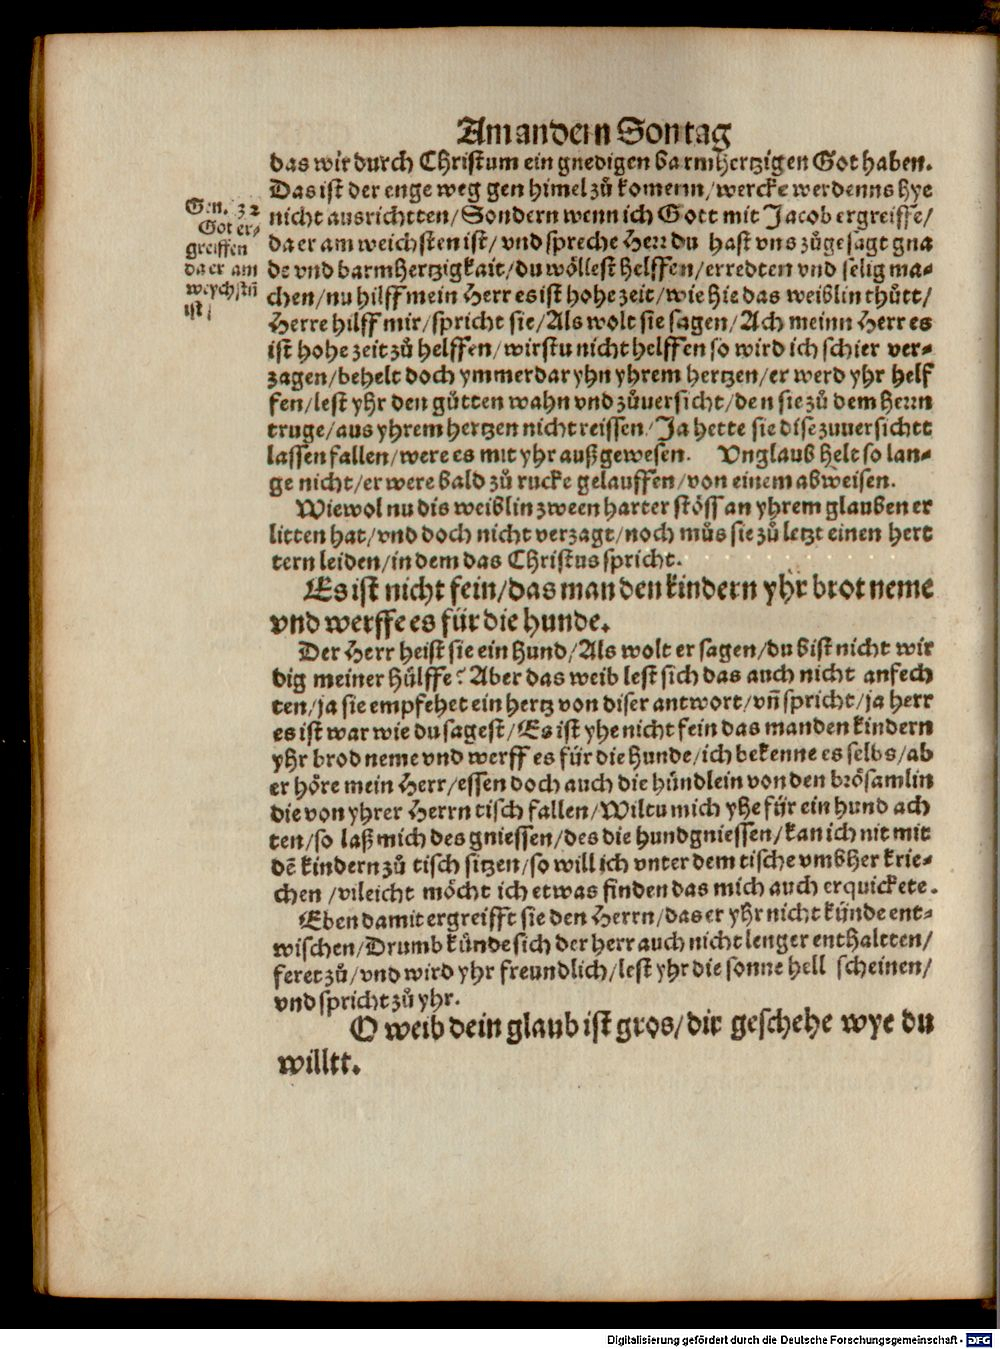 Am andern Sontag
das wir durch Christum ein gnedigen barmhertzigen Got haben.
Das ist der enge weg gen himel zů komenn/wercke werdenns hye
nicht ausrichtten/Sondern wenn ich Gott mit Jacob ergreiffe/
da er am weichsten ist/vnd spreche Herr du hast vns zůgesagt gna
de vnd barmhertzigkait/du wöllest helffen/erredten vnd selig ma-
chen/nu hilff mein Herr es ist hohe zeit/wie hie das weiblin thůtt/
Herre hilff mir/spricht sie/Als wolt sie sagen/Ach meinn Herr es
ist hohe zeit zů helffen/wirstu nicht helffen so wird ich schier ver-
zagen/behelt doch ymmerdar yhn yhrem hertzen/er werd yhr helf
fen/lest yhr den gůtten wahn vnd zůuersicht/den sie zů dem Herrn
truge/aus yhrem hertzen nicht reissen/Ja hette sie dise zuuersichtt
lassen fallen/were es mit yhr außgewesen. Vnglaub helt so lan-
ge nicht/er were bald zů rucke gelauffen/von einem abweisen.
Wiewol nu dis weiblin zween harter stöss an yhrem glauben er
litten hat/vnd doch nicht verzagt/noch můs sie zů letzt einen hert
tern leiden/in dem das Christus spricht.
Es ist nicht fein/das man den kindern yhr brot neme
vnd werffe es für die hunde.
Der Herr heist sie ein hund/Als wolt er sagen/du bist nicht wir
dig meiner hülffe? Aber das weib lest sich das auch nicht anfech
ten/ja sie empfehet ein hertz von diser antwort/vn̄ spricht/ja herr
es ist war wie du sagest/Es ist yhe nicht fein das man den kindern
yhr brod neme vnd werff es für die hunde/ich bekenne es selbs/ab
er höre mein Herr/essen doch auch die hündlein von den brösamlin
die von yhrer Herrn tisch fallen/Wiltu mich yhe für ein hund ach
ten/so laß mich des gniessen/des die hund gniessen/kan ich nit mit
dē kindern zů tisch sitzen/so will ich vnter dem tische vmbher krie-
chen/vileicht möcht ich etwas finden das mich auch erquickete.
Eben damit ergreifft sie den Herrn/das er yhr nicht künde ent-
wischen/Drumb künde sich der herr auch nicht lenger enthaltten/
feret zů/vnd wird yhr freundlich/lest yhr die sonne hell scheinen/
vnd spricht zů yhr.
O weib dein glaub ist gros/dir geschehe wye du
willtt.
Gen. 32
Got er-
greiffen
da er am
weychstn̄
ist/
Digitalisierung gefördert durch die Deutsche Forschungsgemeinschaft - DFG